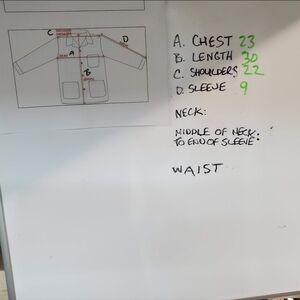 C
D
A
B
A. CHEST 23
B. LENGTH 30
C. SHOULDERS 22
D. SLEEVE 9
NECK:
MIDDLE OF NECK
TO END OF SLEEVE:
WAIST